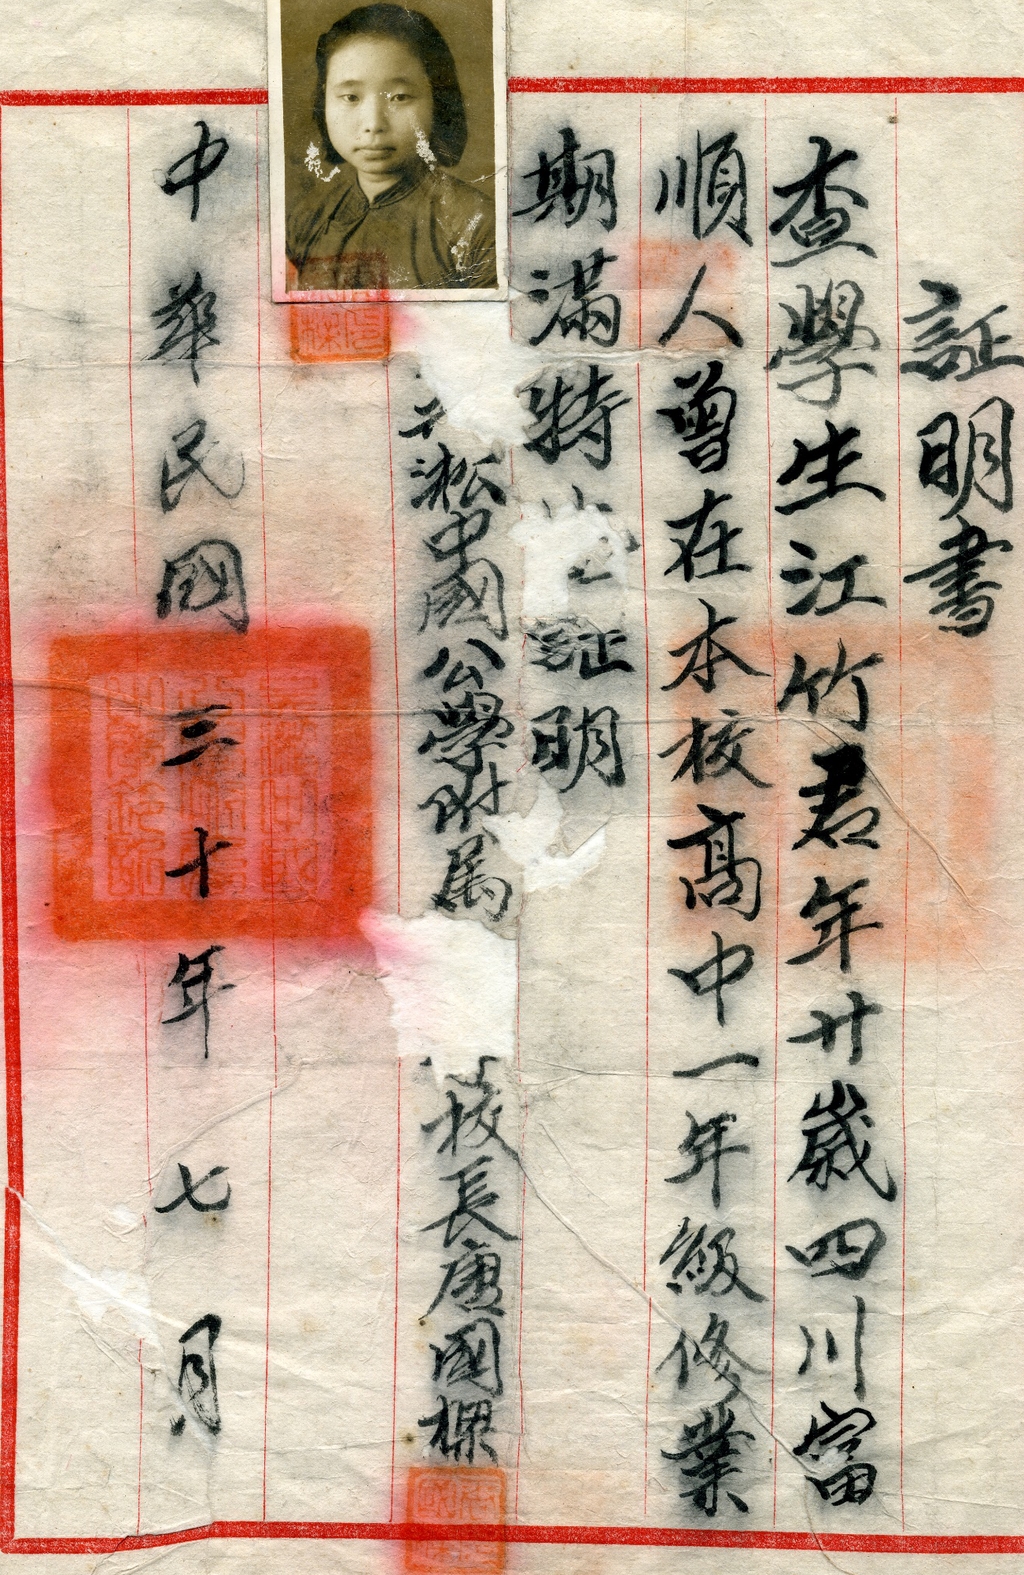 証明書
查學生江竹君年廿歲四川富
順人曾在本校高中一年級修業
期滿特
証明
淞中國公學附属
校長唐國樑
中華民國三十年七月